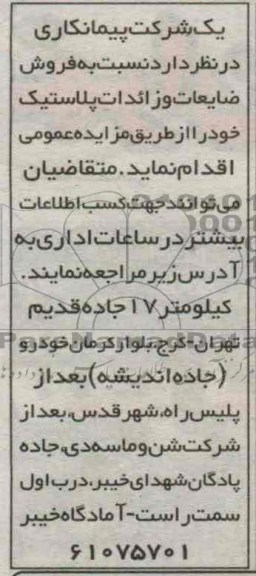 یک شرکت پیمانکاری
در نظر دارد نسبت به فروش
ضایعات و زائدات پلاستیک
خود را از طریق مزایده عمومی
اقدام نماید. متقاضیان
می توانند جهت کسب اطلاعات
بیشتر در ساعات اداری به
آدرس زیر مراجعه نمایند.
کیلومتر ۱۷ جاده قدیم
تهران-کرج، بلوار کرمان خودرو
(جاده اندیشه) بعد از
پلیس راه، شهر قدس، بعد از
شرکت شن و ماسه دی، جاده
پادگان شهدای خیبر، درب اول
سمت راست-آمادگاه خیبر
۶۱۰۷۵۷۰۱